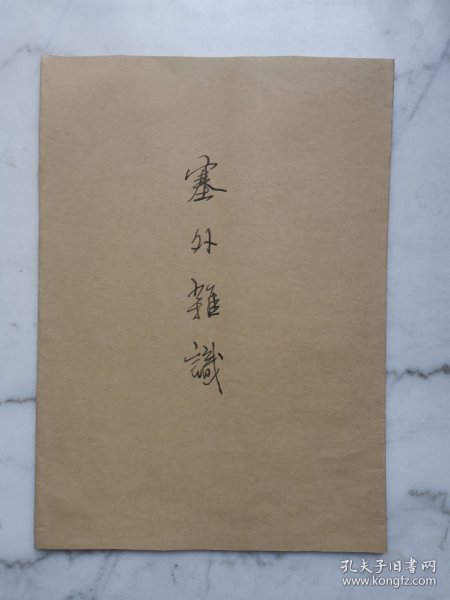 塞外雜識
孔夫子旧书网
www.kongfz.com